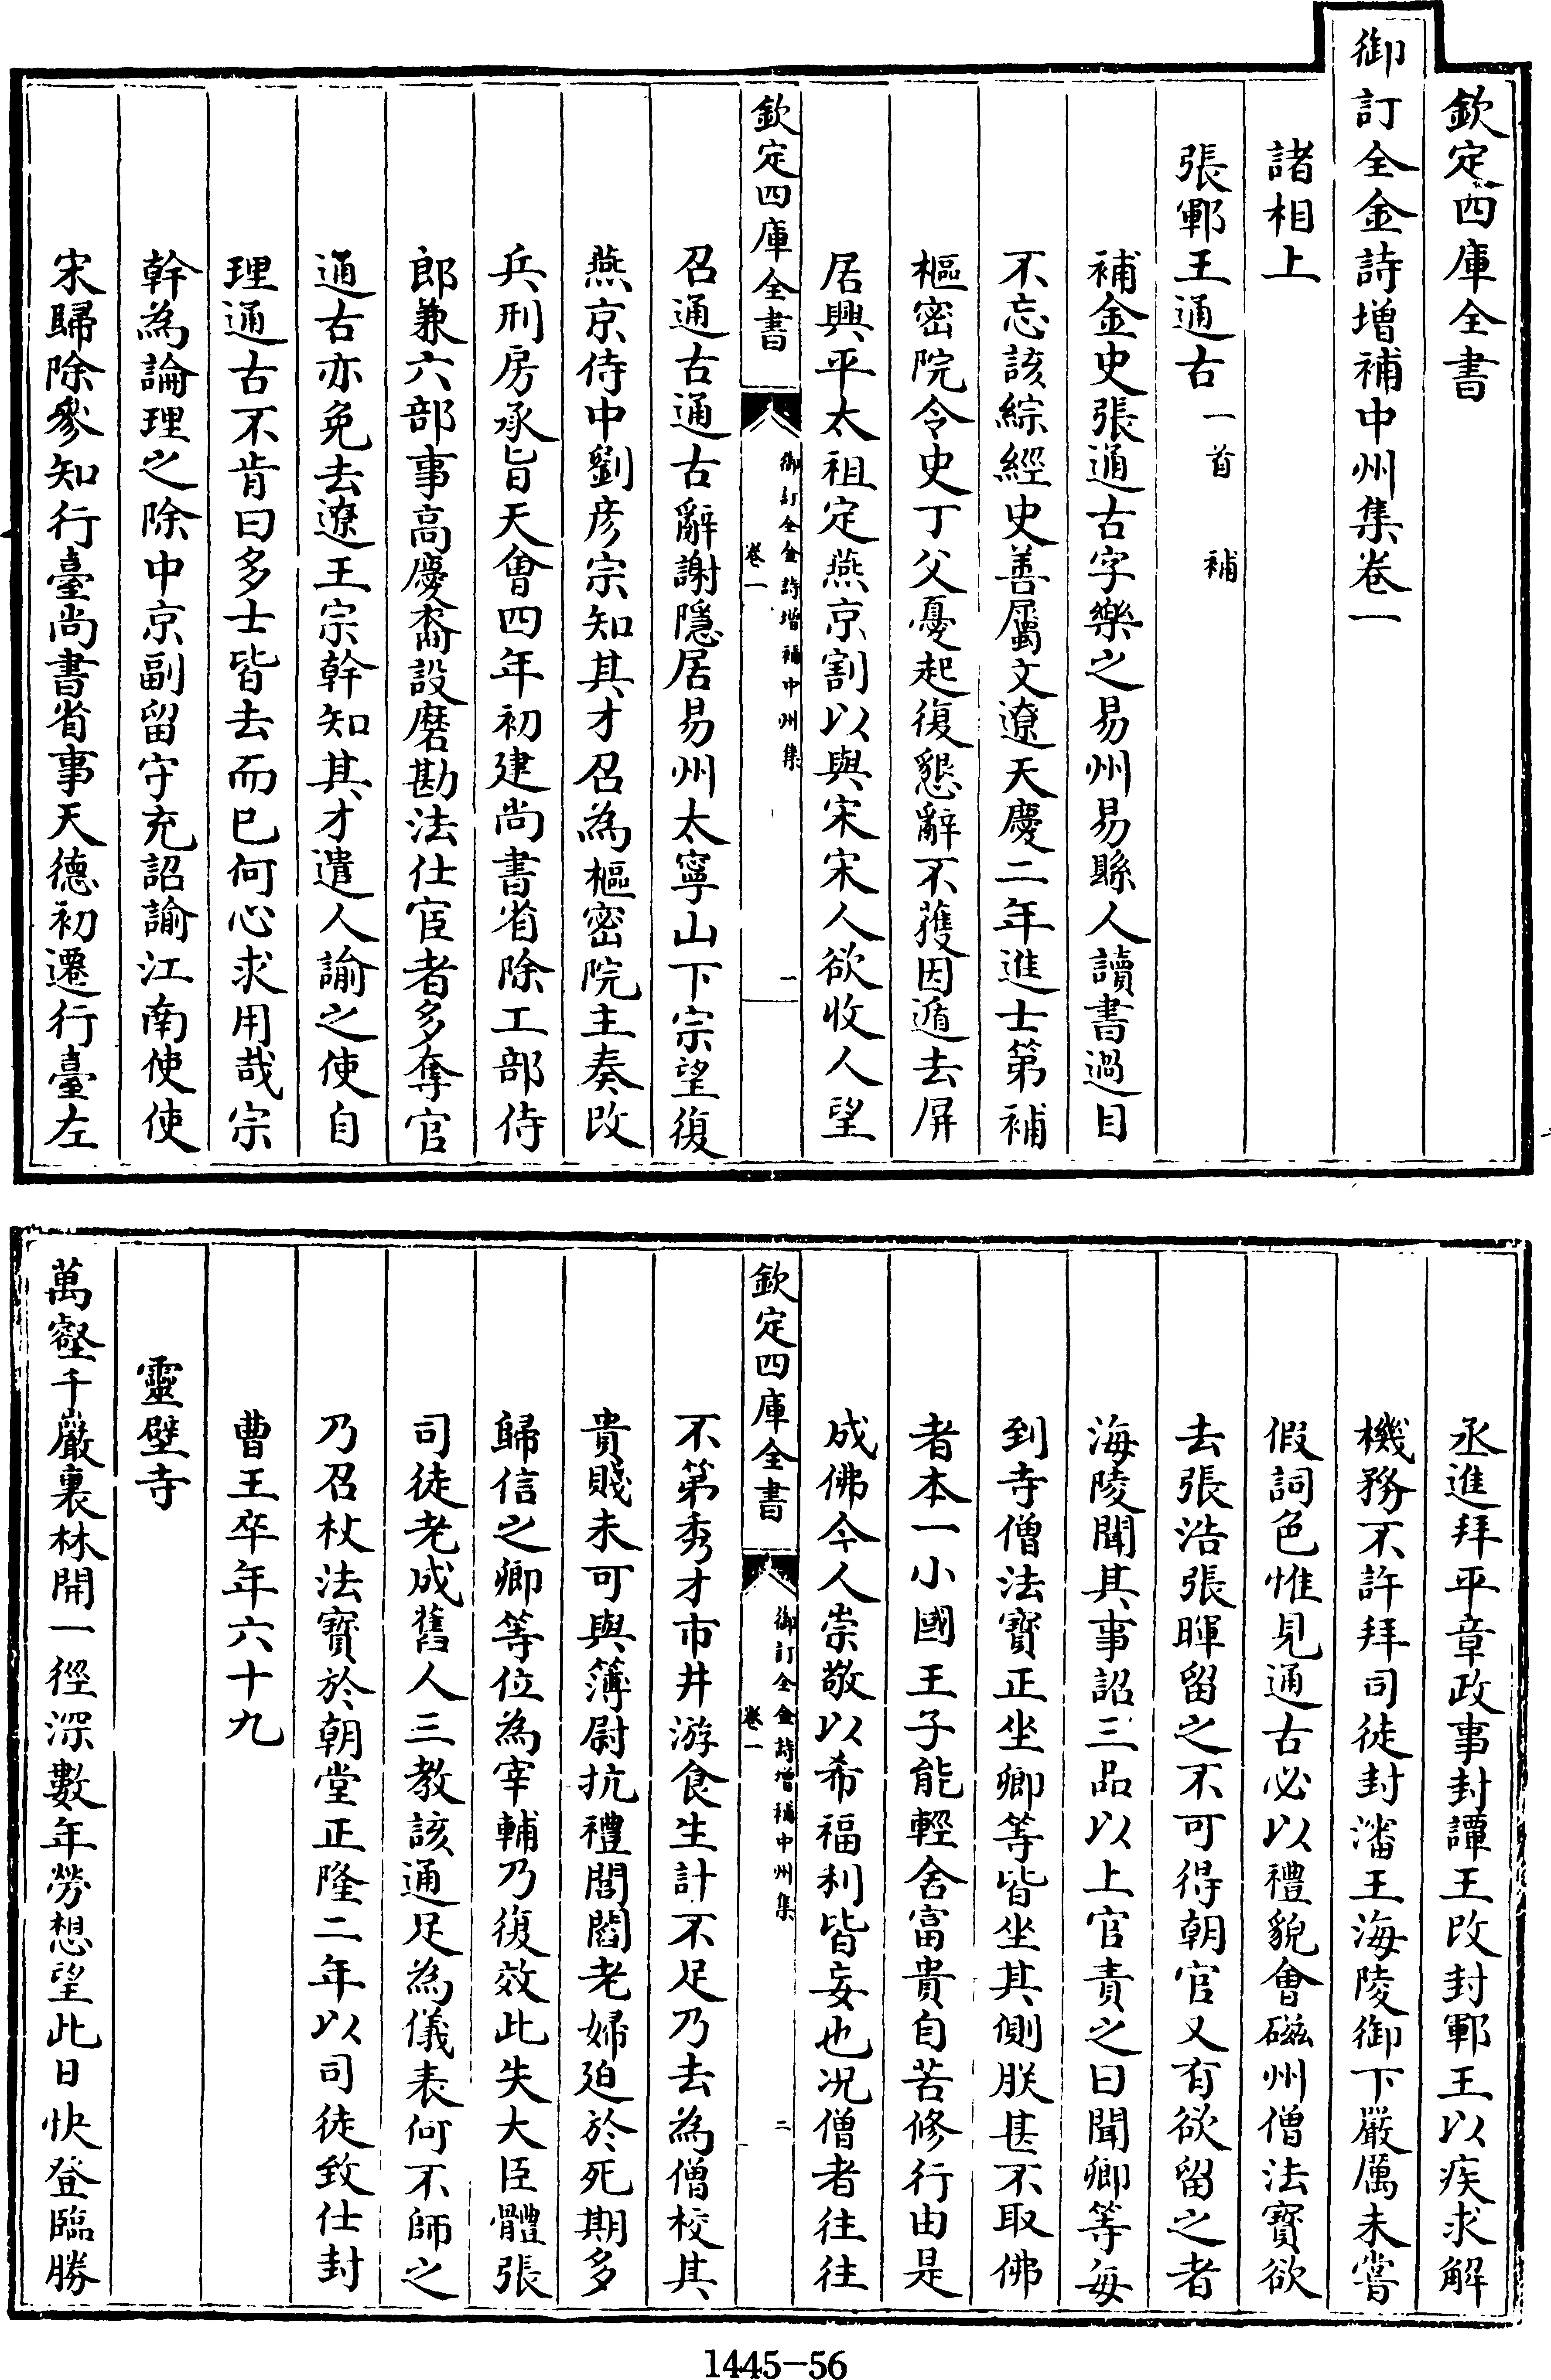 欽定四庫全書
御訂全金詩增補中州集卷一
諸相上
張鄆王通古一首 補
補金史張通古字樂之易州易縣人讀書過目
不忘該綜經史善屬文遼天慶二年進士第補
樞密院令史丁父憂起復懇辭不獲因遁去屏
居興平太祖定燕京割以與宋宋人欲收人望
欽定四庫全書
御訂全金詩增補中州集
卷一
一
召通古通古辭謝隱居易州太寧山下宗望復
燕京侍中劉彥宗知其才召為樞密院主奏改
兵刑房承旨天會四年初建尚書省除工部侍
郎兼六部事高慶裔設磨勘法仕宦者多奪官
通古亦免去遼王宗幹知其才遣人諭之使自
理通古不肯曰多士皆去而已何心求用哉宗
幹為論理之除中京副留守充詔諭江南使使
宋歸除參知行臺尚書省事天德初遷行臺左
丞進拜平章政事封譚王改封鄆王以疾求解
機務不許拜司徒封瀋王海陵御下嚴厲未嘗
假詞色惟見通古必以禮貌會磁州僧法寶欲
去張浩張暉留之不可得朝官又有欲留之者
海陵聞其事詔三品以上官責之曰聞卿等每
到寺僧法寶正坐卿等皆坐其側朕甚不取佛
者本一小國王子能輕舍富貴自苦修行由是
成佛今人崇敬以希福利皆妄也况僧者往往
欽定四庫全書
御訂全金詩增補中州集
卷一
二
不第秀才市井游食生計不足乃去為僧校其
貴賤未可與簿尉抗禮閭閻老婦迫於死期多
歸信之卿等位為宰輔乃復效此失大臣體張
司徒老成舊人三教該通足為儀表何不師之
乃召杖法寶於朝堂正隆二年以司徒致仕封
曹王卒年六十九
靈壁寺
萬壑千巖裏林開一徑深數年勞想望此日快登臨勝
1445-56